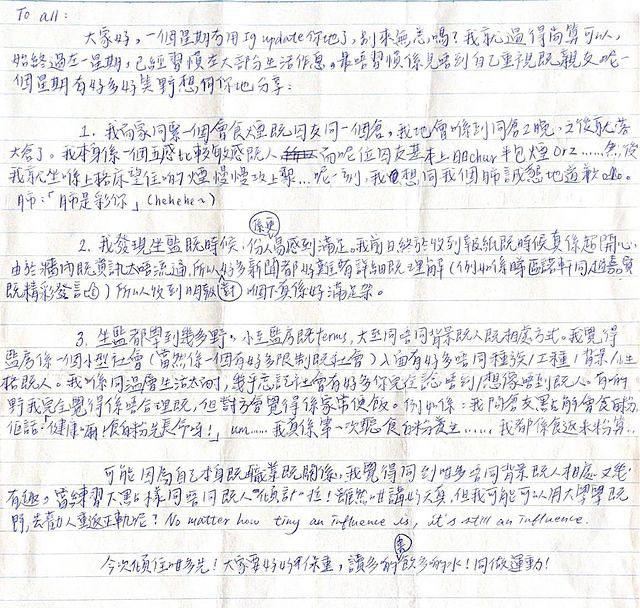 To all:
大家好，一個星期冇用Ig update你地了，別來無恙嗎？我就過得尚算可以，
始終過左一星期，已經習慣左大部分生活作息。最唔習慣係見唔到自己重視既親友呢一
個星期有好多好笑野想同你地分享：
1. 我而家同緊一個會食煙既囚友同一個倉，我地會喺到同倉2晚，之後就落
大倉了。我本身係一個五感比較敏感既人 而呢位囚友基本上日chur半包煙 Orz……然後
我就坐喺上格床望住啲煙慢慢攻上黎…呢一刻，我想同我個肺誠懇地道歉
肺：「肺是彩你」(hehehe2)
2. 我發現坐監既時候，份人係更易感到滿足。我前日終於收到報紙既時候真係超開心，
由於牆內既資訊太唔流通，所以好多新聞都好難有詳細既理解（例如係睇區諾軒同趙
既精彩發言）所以收到明報對個下真係好滿足架。
3. 坐監都學到幾多野，小至監房既terms，大至同唔同背景既人既相處方式。我覺得
監房係一個小型社會（當然係一個有好多限制既社會）入面有好多唔同種族/工種/背景/性
格既人。我喺同溫層生活太耐，幾乎忘記社會有好多你完全諗唔到/想像唔到既人。有啲
野我完全覺得係唔合理既，但對方會覺得係家常便飯。例如係：我問倉友點解會食白粉
佢話：「健康嘛！食白粉先長命呀！」um……我真係第一次聽食白粉養生……，我都係食返米粉算..
可能因為自己本身既職業既關係，我覺得同到咁多唔同背景既人相處又幾
有趣，當練習大點樣同唔同既人"傾計"啦！雖然咁講好天真，但我可能可以用大學學既
野，去勸人重返正軌呢？No matter how tiny an influence is, it's still an influence.
今次傾住咁多先！大家要好好保重，讀多啲書飲多啲水！同做運動！